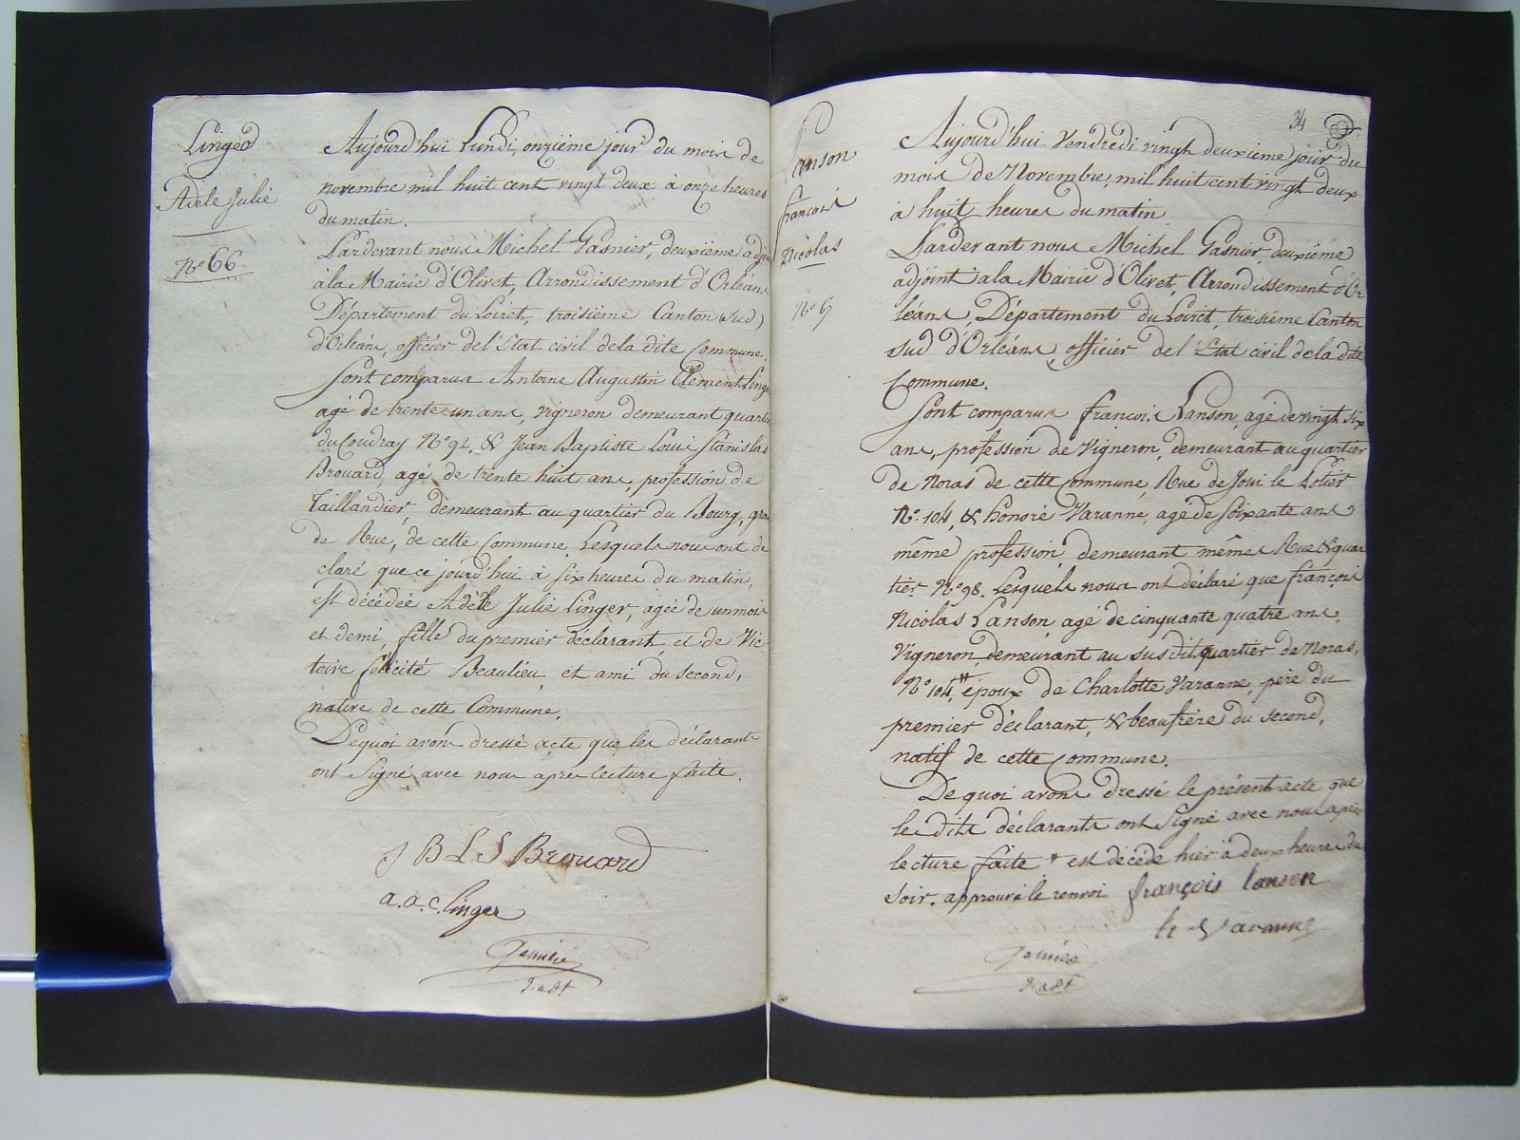 Linger
Adele Julie
N° 66
Aujourd'hui Lundi, onzième jour du mois de
novembre mil huit cent vingt deux à onze heures
du matin.
Pardevant nous Michel Gasnier, deuxième adjoi
à la Mairie d'Olivet, Arrondissement d'Orléans
Département du Loiret, troisième Canton (sud)
d'Orléans, officier de l'Etat civil de la dite Commune.
Sont comparus Antoine Augustin Clement Linge
agé de trente un ans, vigneron demeurant quartier
du Coudray N° 92, & Jean Baptiste Louis Stanislas
Brouard, agé de trente huit ans, profession de
Taillandier, demeurant au quartier du Bourg, gran
de Rue, de cette Commune, Lesquels nous ont dé
claré que ce jourd'hui à six heures du matin,
est décédée Adèle Julie Linger, agée de un mois
et demi, fille du premier déclarant, et de Vic-
toire félicité Beaulieu, et ami du second,
native de cette Commune.
Dequoi avons dressé acte que les déclarants
ont Signé avec nous après lecture faite.
J B L S Brouard
a. a. c. linger
34
Lanson
françois
Nicolas
N° 67
Aujourd'hui Vendredi vingt deuxième jour du
mois de Novembre, mil huit cent vingt deux
à huit heures du matin
Pardevant nous Michel Gasnier, deuxième
adjoint à la Mairie d'Olivet, Arrondissement d'Or
léans, Département du Loiret, troisième Canton
sud d'Orléans, officier de l'Etat civil de la dite
Commune.
Sont comparus françois Lanson, agé de vingt six
ans, profession de Vigneron, demeurant au quartier
de Noras de cette Commune, Rue de Joui le Potier
N° 104, & honoré Varanne, agé de soixante ans
même profession, demeurant mêmes Rue & quar
tier N° 98. Lesquels nous ont déclaré que françois
Nicolas Lanson, agé de cinquante quatre ans.
Vigneron, demeurant au susdit quartier de Noras,
N° 104, # époux de Charlotte Varanne, père du
premier déclarant, & beaufrère du second,
natif de cette Commune.
De quoi avons dressé le présent acte que
les dits déclarants ont Signé avec nous après
lecture faite # est décédé hier à deux heures du
soir. approuvé le renvoi françois lanson
h Varanne